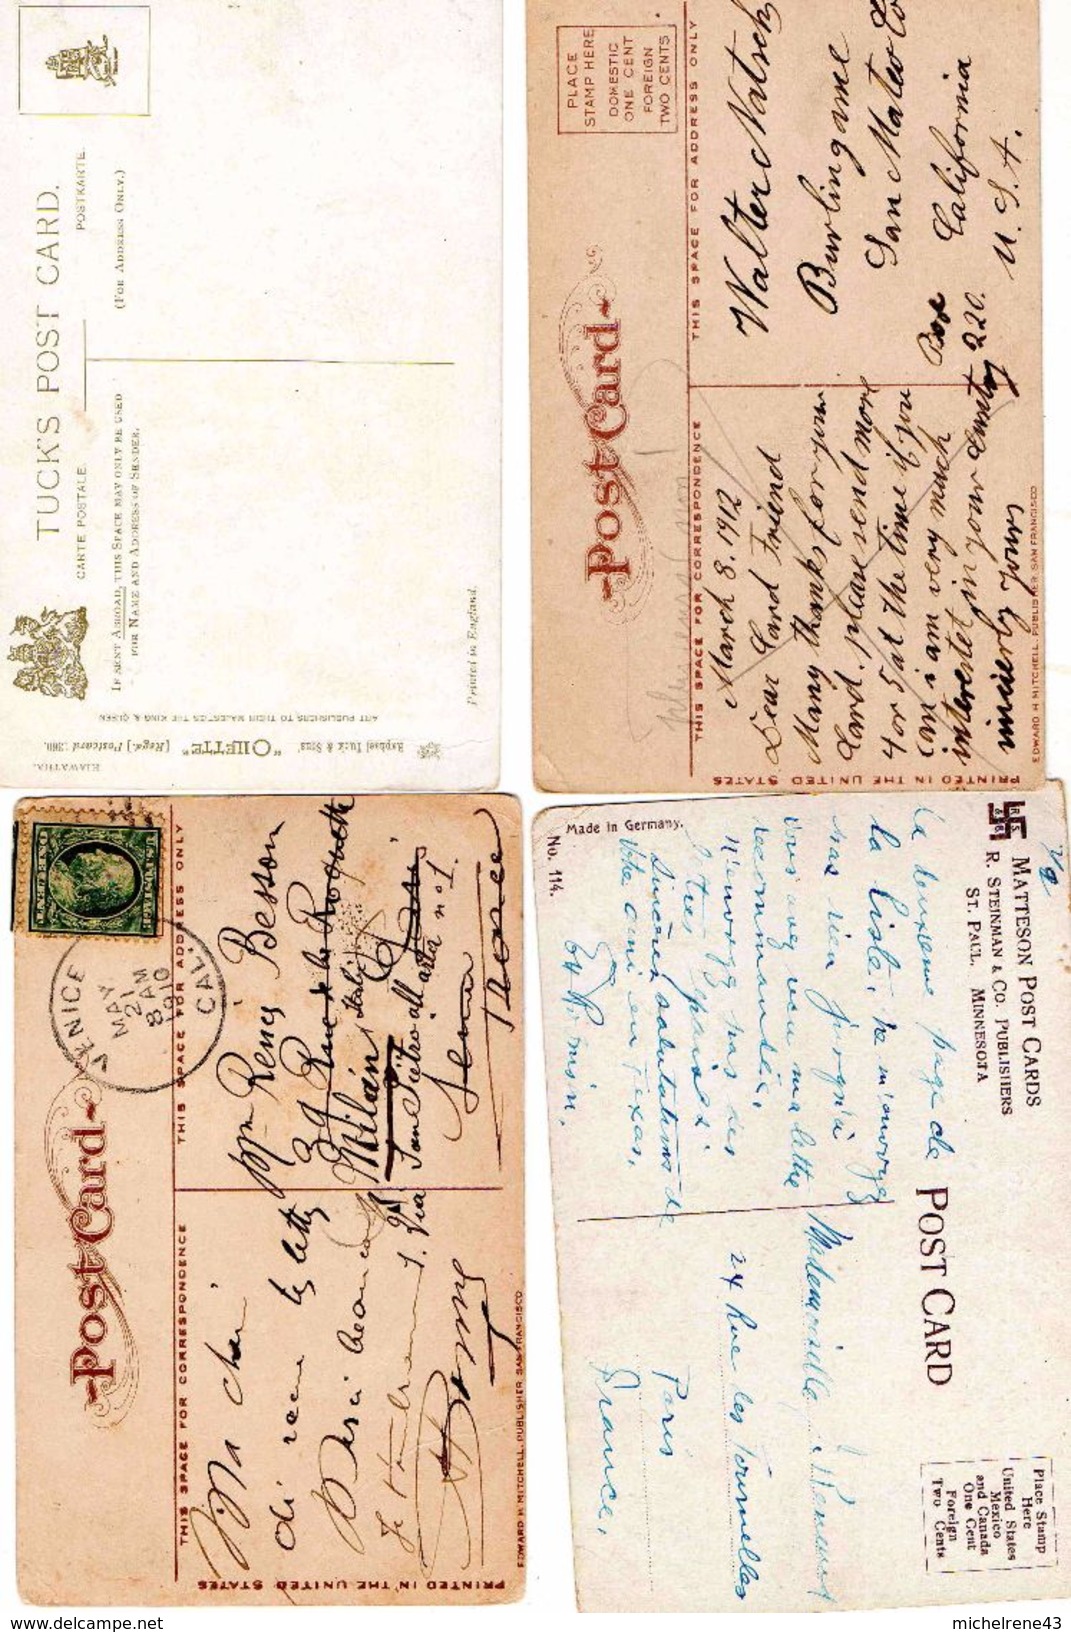 TUCK'S POST CARD.
CARTE POSTALE
POSTKARTE.
IF SENT ABROAD, THIS SPACE MAY ONLY BE USED
FOR NAME AND ADDRESS OF SENDER.
(FOR ADDRESS ONLY.)
Printed in England.
ART PUBLISHERS TO THEIR MAJESTIES THE KING & QUEEN
Raphael Tuck & Sons' "OILETTE" [Regd.] Postcard 1360.
HIAWATHA.
PLACE
STAMP HERE
DOMESTIC
ONE CENT
FOREIGN
TWO CENTS
Post Card
THIS SPACE FOR CORRESPONDENCE
THIS SPACE FOR ADDRESS ONLY
March 8. 1912
Dear Card Friend
Many thanks for your
Card. please send more
4 or 5 at the time if you
can i am very much
interestet in your
yours
Walter
Burlingame
San Mateo Co
Box 220.
California
U. S. A.
EDWARD H MITCHELL, PUBLISHER, SAN FRANCISCO
PRINTED IN THE UNITED STATES
VENICE
MAY
21
8 AM
1910
CAL.
Post Card
THIS SPACE FOR CORRESPONDENCE
THIS SPACE FOR ADDRESS ONLY
Besson
29 Rue de la Roquette
Milán
Italie
Via San Pietro all'orto no 1.
France
EDWARD H MITCHELL, PUBLISHER, SAN FRANCISCO
PRINTED IN THE UNITED STATES
Made in Germany.
No. 114.
MATTESON POST CARDS
R. STEINMAN & CO. PUBLISHERS
ST. PAUL, MINNESOTA
POST CARD
Place Stamp
Here
United States
Mexico
and Canada
One Cent
Foreign
Two Cents
la deuxieme page de
la liste, ne m'envoyez
pas rien jusqu'a
vous avez recu ma lettre
recommandée,
N'envoyez pas des
Sincères salutations de
Votre ami en Texas,
Mademoiselle
24 Rue des Tournelles
Paris
France,
michelrene43